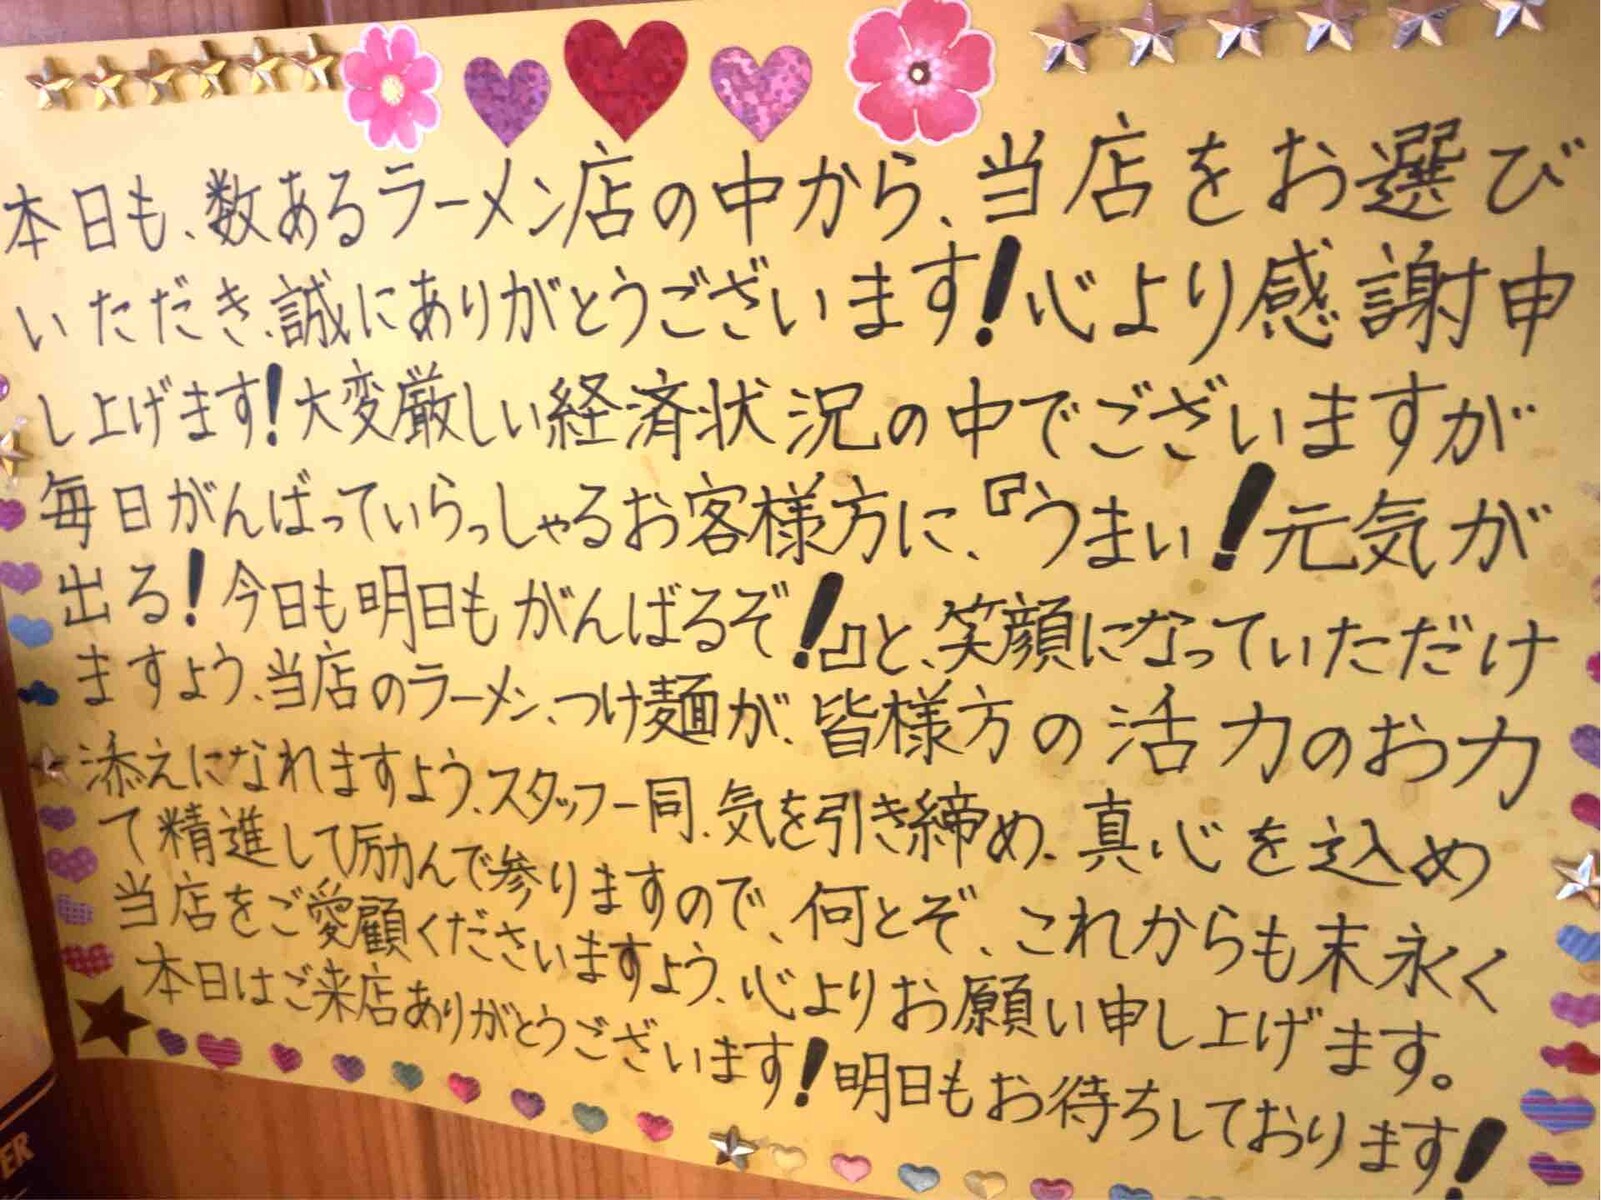 本日も、数あるラーメン店の中から、当店をお選び
いただき、誠にありがとうございます!心より感謝申
し上げます!大変厳しい経済状況の中でございますが
毎日がんばっていらっしゃるお客様方に、『うまい!元気が
出る!今日も明日もがんばるぞ!』と、笑顔になっていただけ
ますよう、当店のラーメン、つけ麺が、皆様方の活力のお力
添えになれますよう、スタッフ一同、気を引き締め、真心を込め
て精進して励んで参りますので、何とぞ、これからも末永く
当店をご愛顧くださいますよう、心よりお願い申し上げます。
本日はご来店ありがとうございます!明日もお待ちしております!
ER